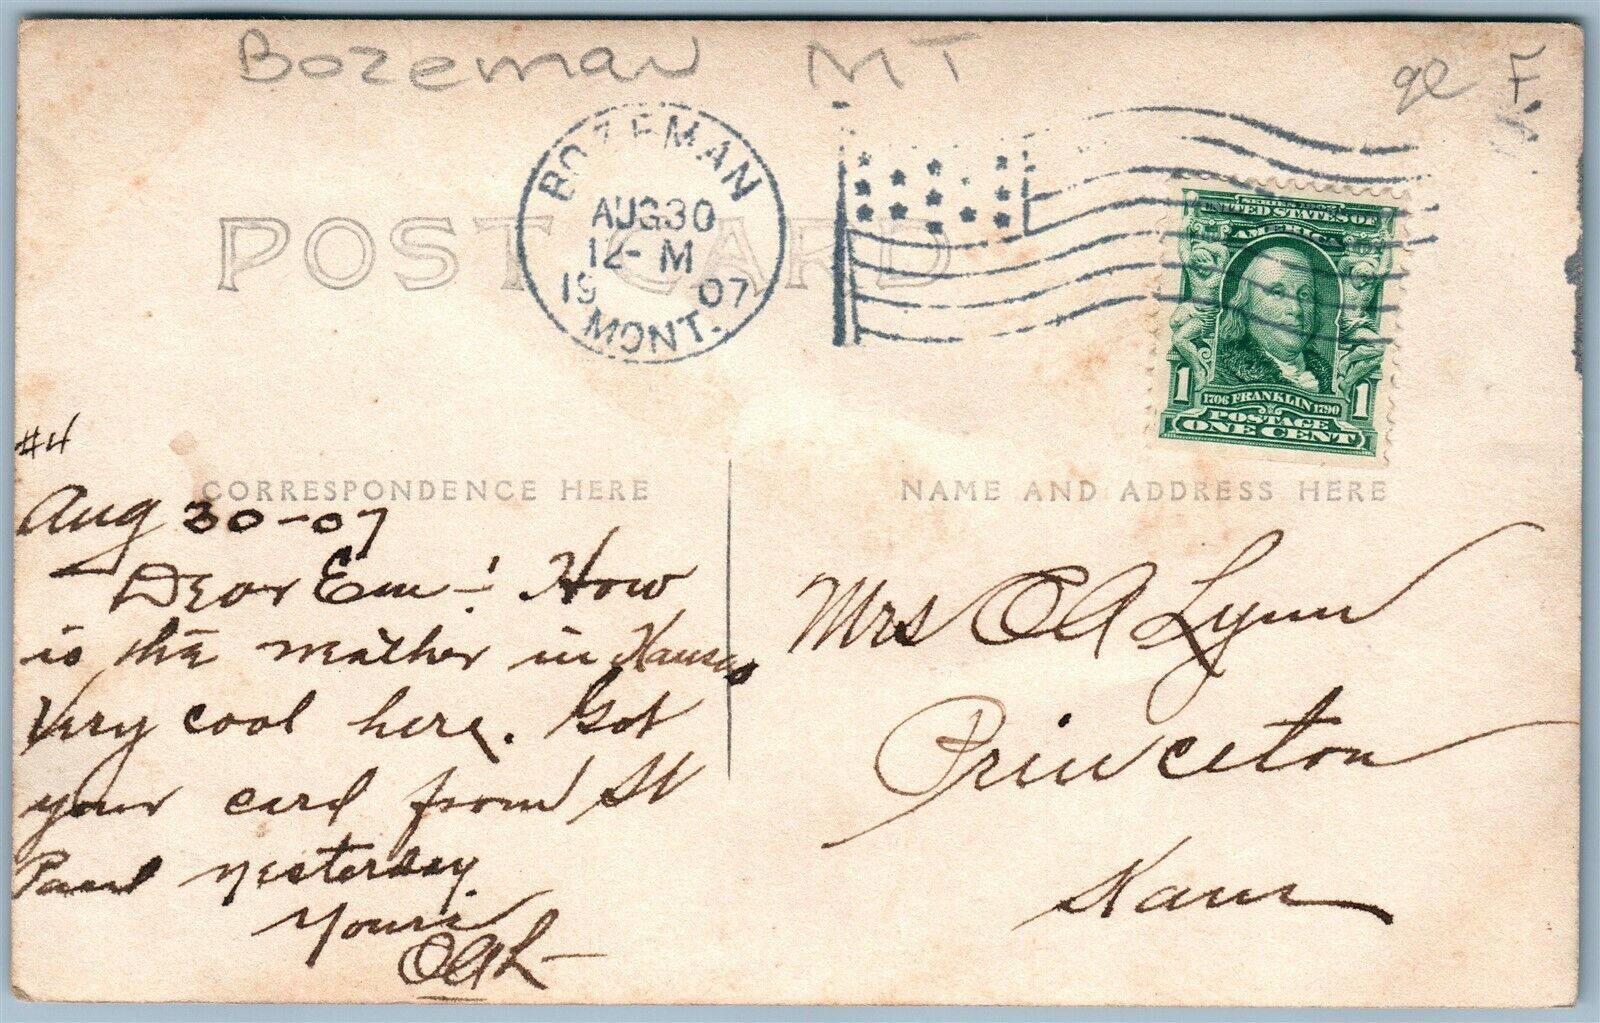 Bozeman MT
BOZEMAN
AUG 30
12- M
1907
MONT.
POST CARD
SERIES 1902
UNITED STATES OF
AMERICA
1 1706 FRANKLIN 1790 1
POSTAGE
ONE CENT
#4
CORRESPONDENCE HERE
Aug 30-07
Dear Em-! How
is the weather in Kansas
Very cool here. Got
your card from St
Paul yesterday.
Yours
OAL-
NAME AND ADDRESS HERE
Mrs O A Lynn
Princeton
Kans